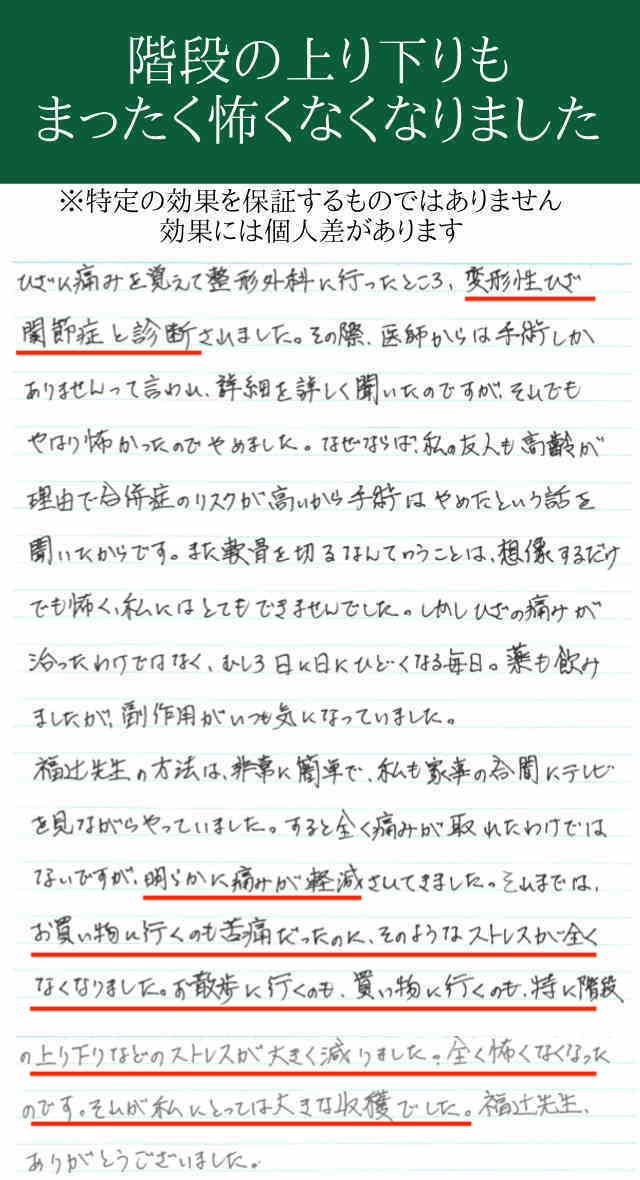 階段の上り下りも
まったく怖くなくなりました
※特定の効果を保証するものではありません
効果には個人差があります
ひざに痛みを覚えて整形外科に行ったところ、変形性ひざ
関節症と診断されました。その際、医師からは手術しか
ありませんって言われ、詳細を詳しく聞いたのですが、それでも
やはり怖かったのでやめました。なぜならば、私の友人も高齢が
理由で合併症のリスクが高いから手術はやめたという話を
聞いたからです。また軟骨を切るなんていうことは、想像するだけ
でも怖く、私にはとてもできませんでした。しかしひざの痛みが
治ったわけではなく、むしろ日に日にひどくなる毎日。薬も飲み
ましたが、副作用がいつも気になっていました。
福辻先生の方法は、非常に簡単で、私も家事の合間にテレビ
を見ながらやっていました。すると全く痛みが取れたわけでは
ないですが、明らかに痛みが軽減されてきました。それまでは、
お買い物に行くのも苦痛だったのに、そのようなストレスが全く
なくなりました。お散歩に行くのも、買い物に行くのも、特に階段
の上り下りなどのストレスが大きく減りました。全く怖くなくなった
のです。それが私にとっては大きな収穫でした。福辻先生、
ありがとうございました。